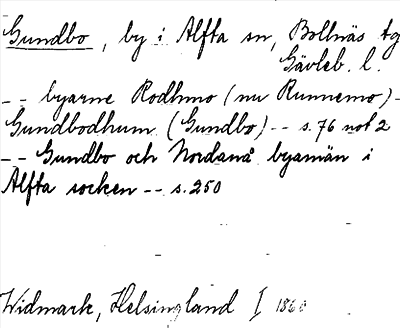 Gundbo, by i Alfta sn, Bollnäs tg
Gävleb. l.
-- byarne Rodhmo (nu Runnemo) -
Gundbodhum (Gundbo) -- s. 76 not 2
-- Gundbo och Nordanå byamän i
Alfta socken -- s. 250
Widmark, Helsingland I 1860